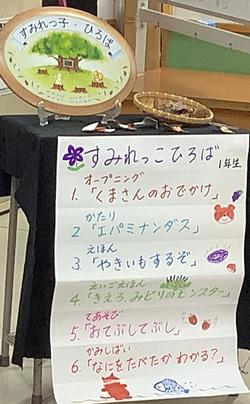 すみれっ子・ひろば
すみれっこひろば 1年生
オープニング
1.「くまさんのおでかけ」
かたり
2「エパミナンダス」
えほん
3.「やきいもするぞ」
えいごえほん
4「きえろ、みどりのモンスター」
てあそび
5.「おてぶしてぶし」
かみしばい
6.「なにをたべたか わかる?」